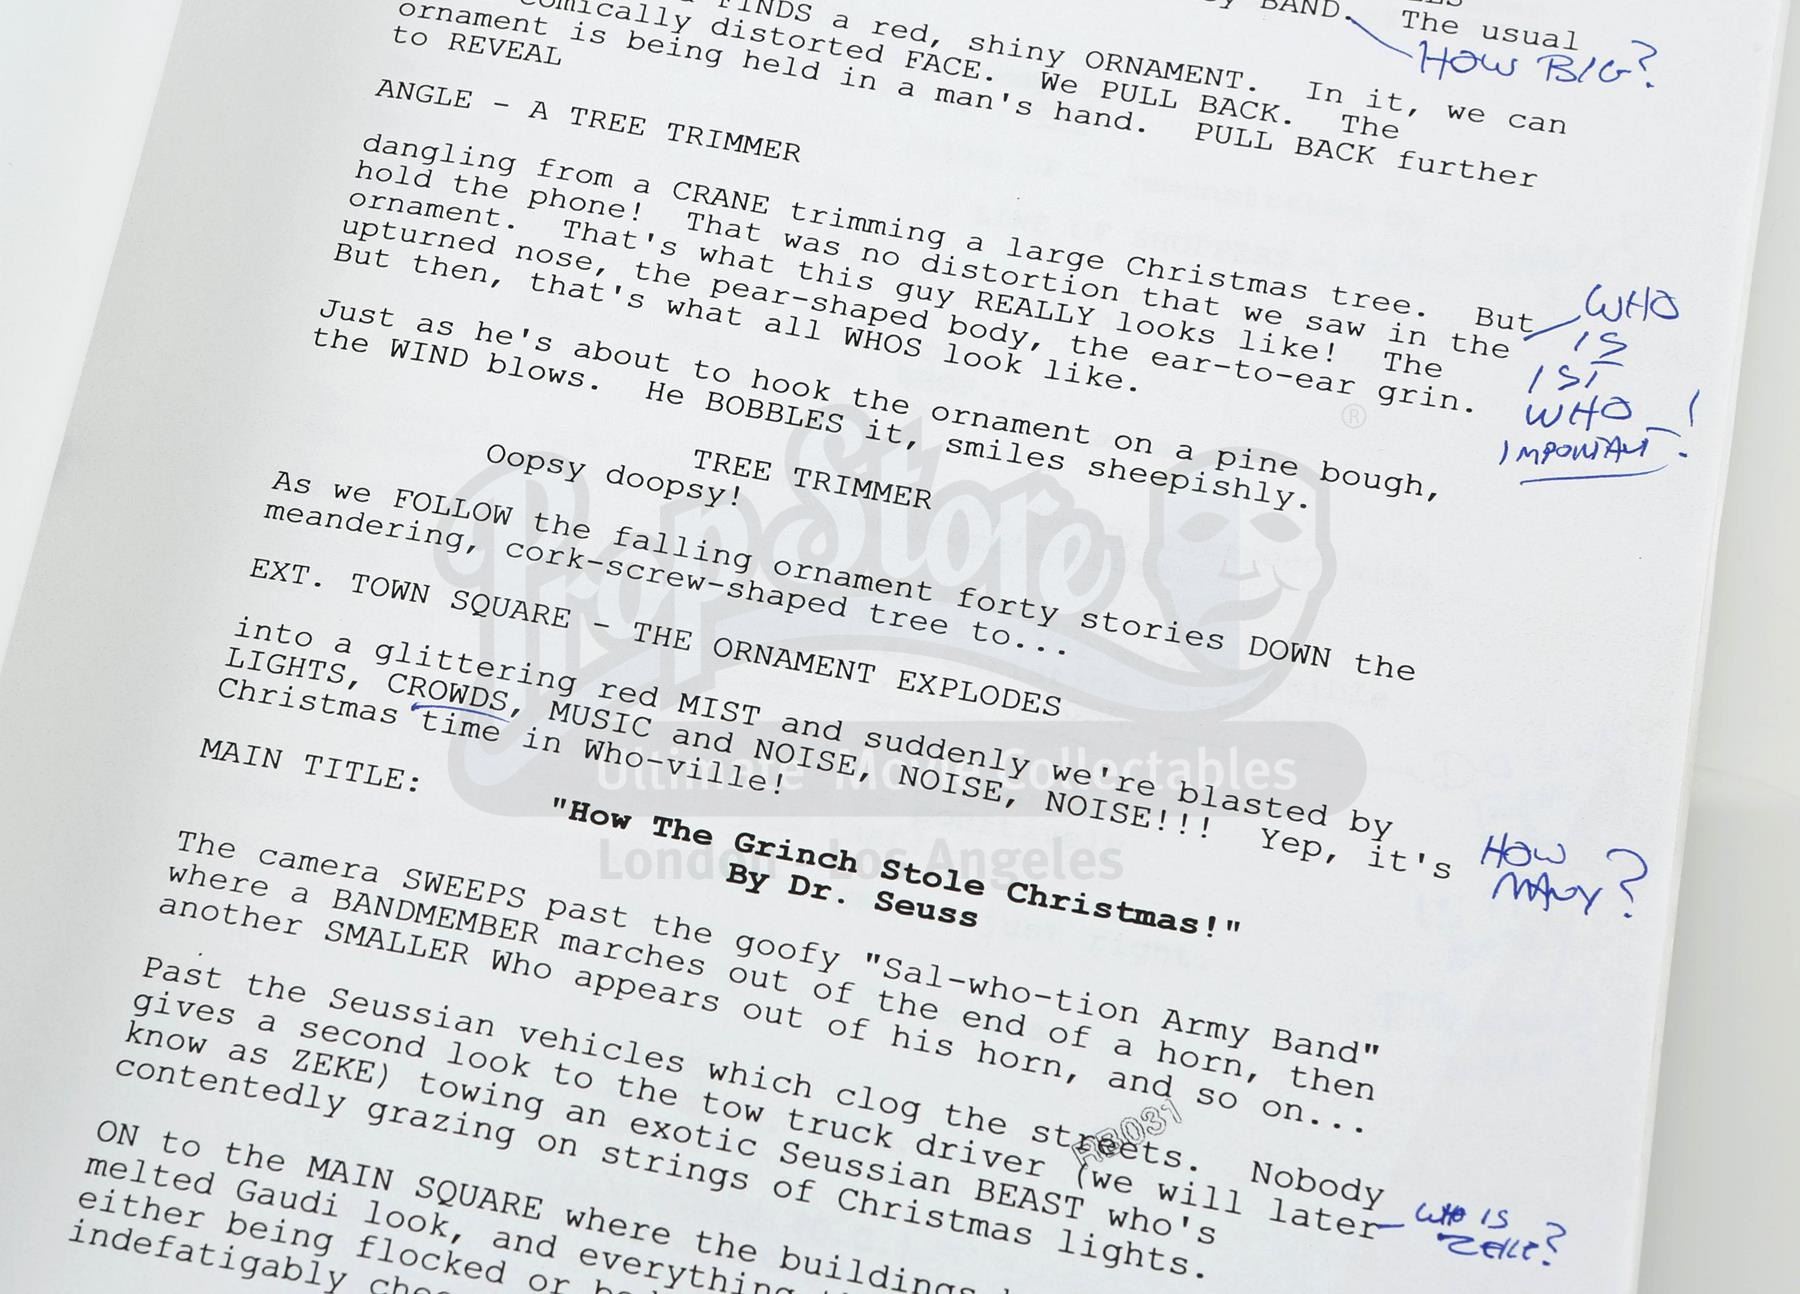 BAND. The usual
HOW BIG?
FINDS a red, shiny ORNAMENT. In it, we can
distorted FACE. We PULL BACK. The
ornament is being held in a man's hand. PULL BACK further
to REVEAL
ANGLE - A TREE TRIMMER
dangling from a CRANE trimming a large Christmas tree. But
hold the phone! That was no distortion that we saw in the
ornament. That's what this guy REALLY looks like! The
upturned nose, the pear-shaped body, the ear-to-ear grin.
But then, that's what all WHOS look like.
WHO
IS
IS'
WHO
IMPORTANT!
Just as he's about to hook the ornament on a pine bough,
the WIND blows. He BOBBLES it, smiles sheepishly.
TREE TRIMMER
Oopsy doopsy!
As we FOLLOW the falling ornament forty stories DOWN the
meandering, cork-screw-shaped tree to...
EXT. TOWN SQUARE - THE ORNAMENT EXPLODES
into a glittering red MIST and suddenly we're blasted by
LIGHTS, CROWDS, MUSIC and NOISE, NOISE, NOISE!!! Yep, it's
Christmas time in Who-ville!
HOW
MANY?
MAIN TITLE:
"How The Grinch Stole Christmas!"
By Dr. Seuss
The camera SWEEPS past the goofy "Sal-who-tion Army Band"
where a BANDMEMBER marches out of the end of a horn, then
another SMALLER Who appears out of his horn, and so on...
Past the Seussian vehicles which clog the streets. Nobody
gives a second look to the tow truck driver (we will later
know as ZEKE) towing an exotic Seussian BEAST who's
contentedly grazing on strings of Christmas lights.
WHO IS
ZEKE?
RB031
ON to the MAIN SQUARE where the buildings
melted Gaudi look, and everything
either being flocked or
indefatigably
PropStore
®
Ultimate Movie Collectables
London Los Angeles